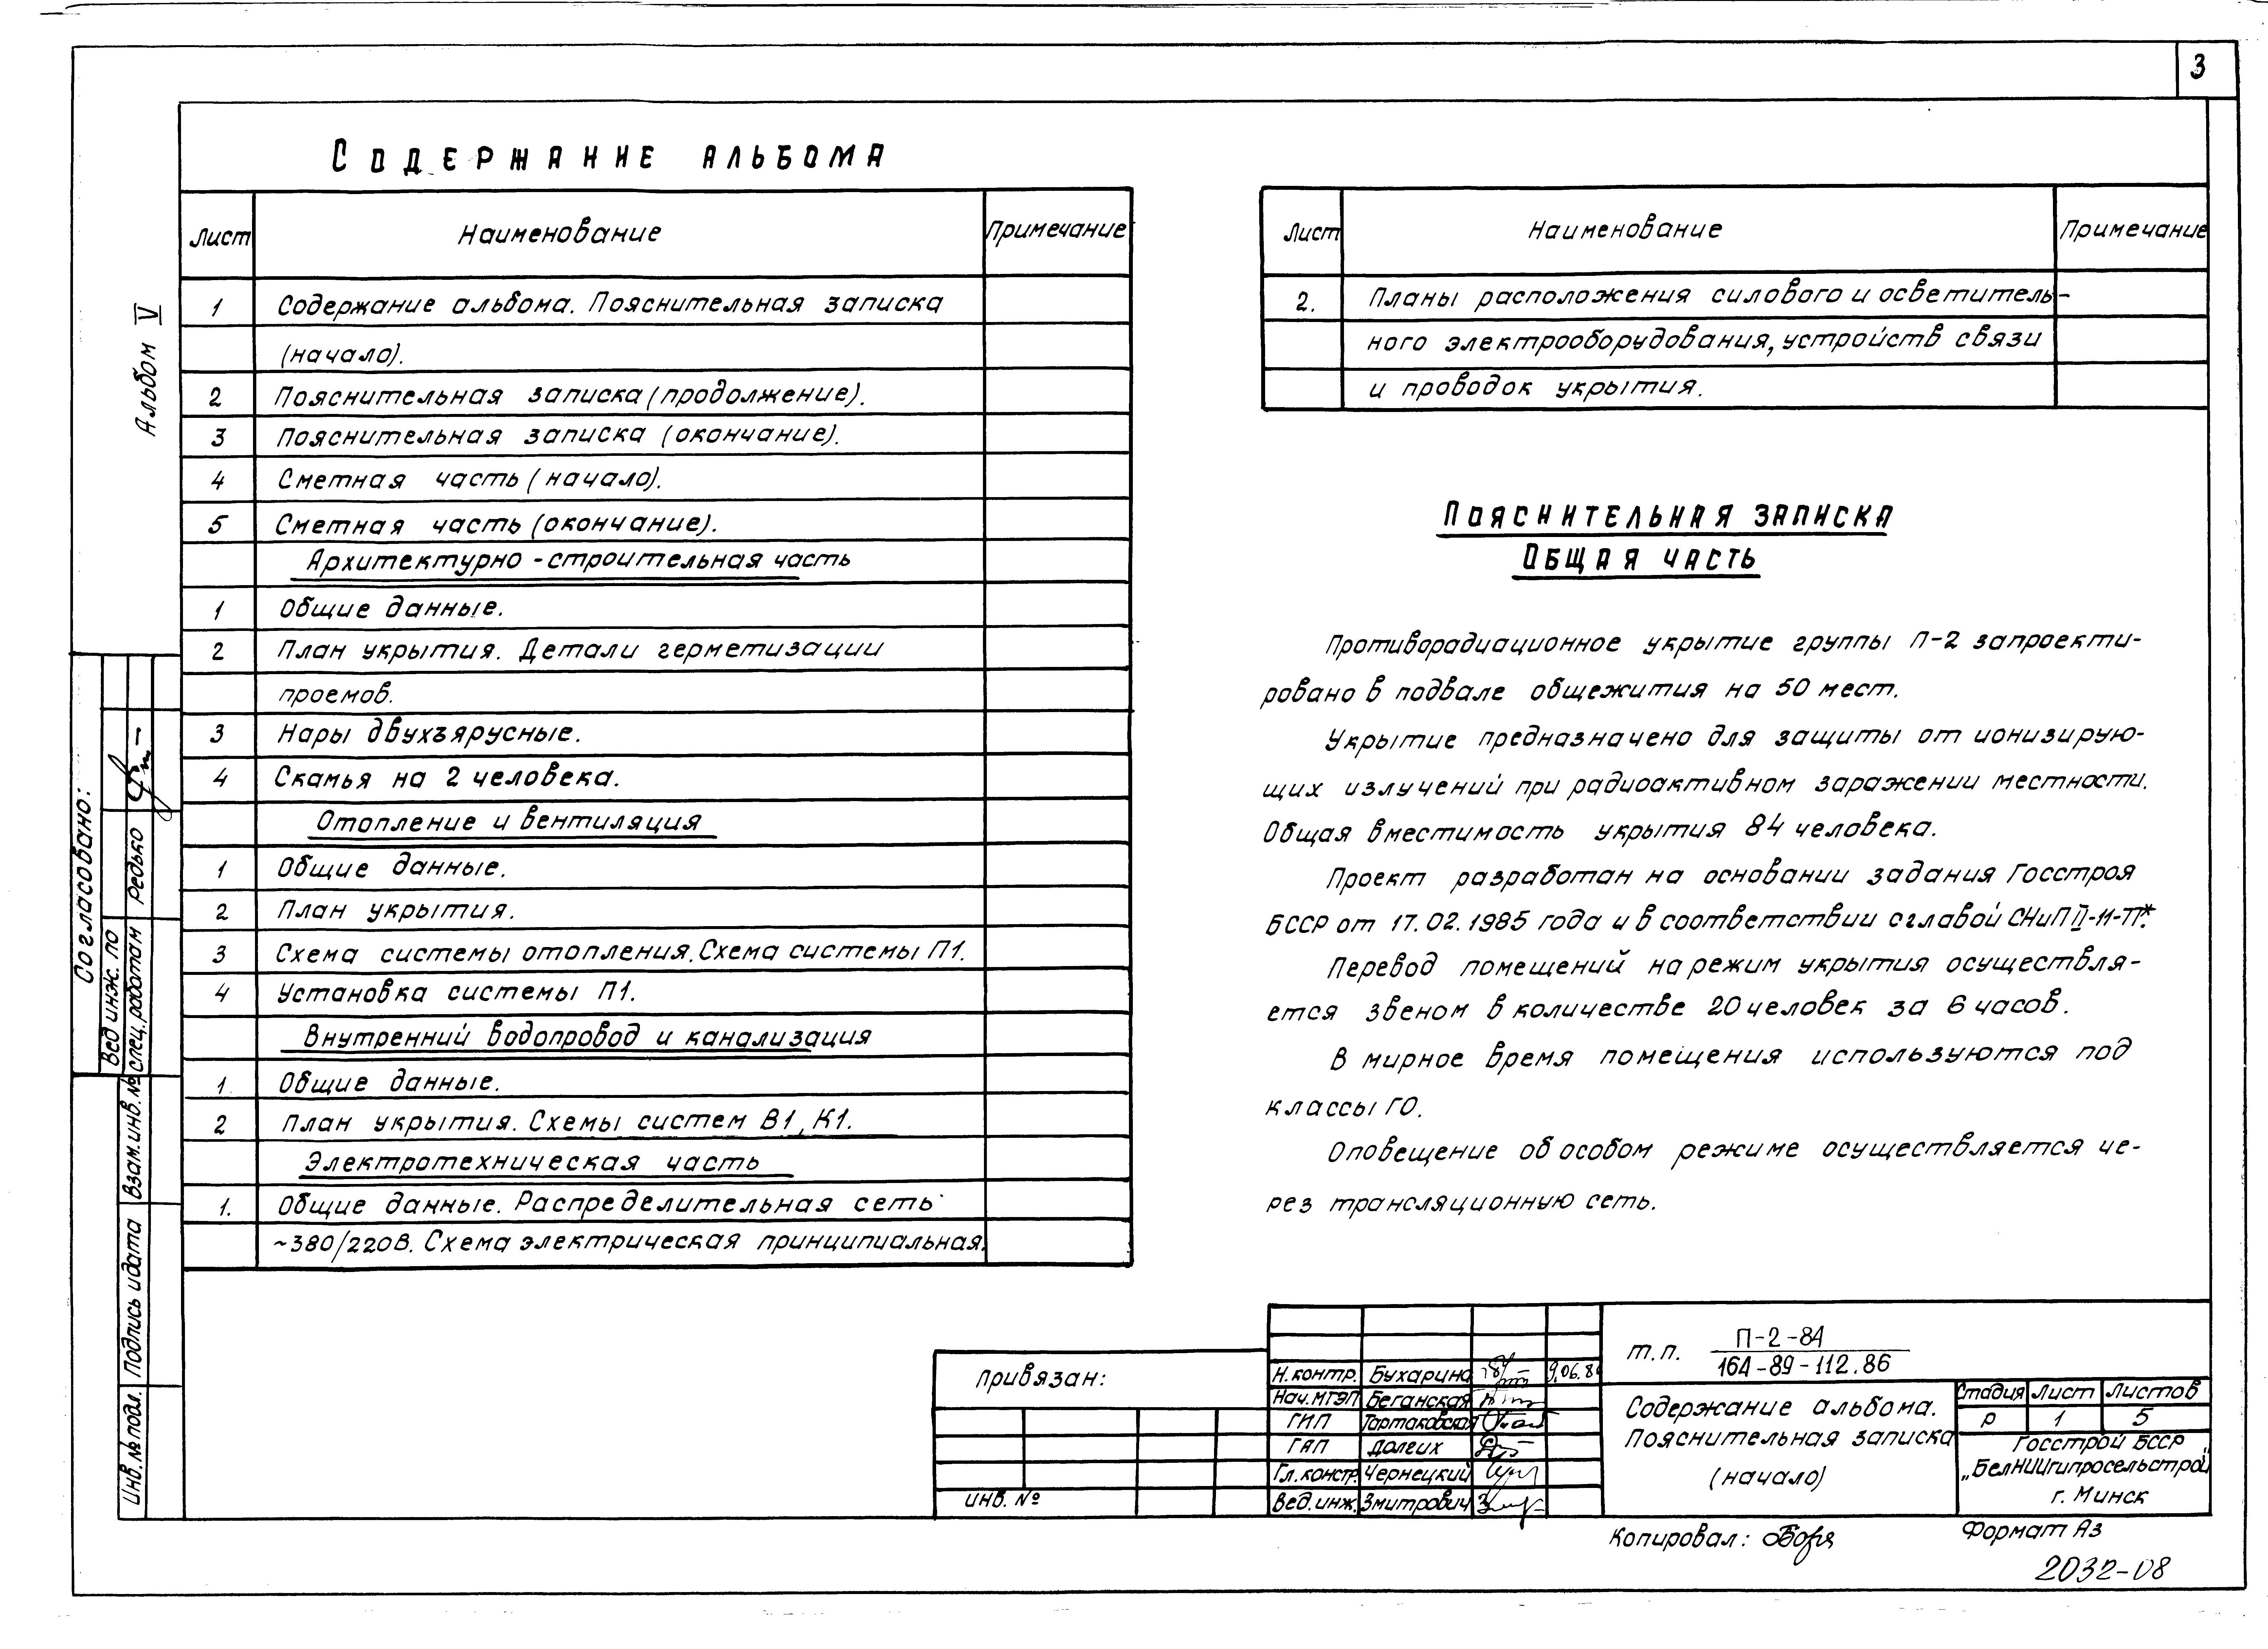 3
Содержание альбома
Лист Наименование Примечание
1 Содержание альбома. Пояснительная записка
(начало).
2 Пояснительная записка (продолжение).
3 Пояснительная записка (окончание).
4 Сметная часть (начало).
5 Сметная часть (окончание).
Архитектурно-строительная часть
1 Общие данные.
2 План укрытия. Детали герметизации
проемов.
3 Нары двухъярусные.
4 Скамья на 2 человека.
Отопление и вентиляция
1 Общие данные.
2 План укрытия.
3 Схема системы отопления. Схема системы П1.
4 Установка системы П1.
Внутренний водопровод и канализация
1 Общие данные.
2 План укрытия. Схемы систем В1, К1.
Электротехническая часть
1. Общие данные. Распределительная сеть
~380/220В. Схема электрическая принципиальная.
Лист Наименование Примечание
2. Планы расположения силового и осветитель-
ного электрооборудования, устройств связи
и проводок укрытия.
Пояснительная записка
Общая часть
Противорадиационное укрытие группы П-2 запроекти-
ровано в подвале общежития на 50 мест.
Укрытие предназначено для защиты от ионизирую-
щих излучений при радиоактивном заражении местности.
Общая вместимость укрытия 84 человека.
Проект разработан на основании задания Госстроя
БССР от 17.02.1985 года и в соответствии с главой СНиП II-11-77*.
Перевод помещений на режим укрытия осуществля-
ется звеном в количестве 20 человек за 6 часов.
В мирное время помещения используются под
классы ГО.
Оповещение об особом режиме осуществляется че-
рез трансляционную сеть.
Альбом V
Согласовано:
Вед инж. по
спец. работам Редько
Взам. инв. №
Подпись и дата
Инв. № подл.
Привязан:
инв. №
Н. контр. Бухарина
Нач. МГЭП Беганская
ГИП Тартаковская
ГАП Долгих
Гл. констр. Чернецкий
Вед. инж. Змитрович
т. п. П-2-84
164-89-112.86
Содержание альбома.
Пояснительная записка
(начало)
Стадия Лист Листов
Р 1 5
Госстрой БССР
„БелНИИгипросельстрой"
г. Минск
Копировал:
Формат А3
2032-08